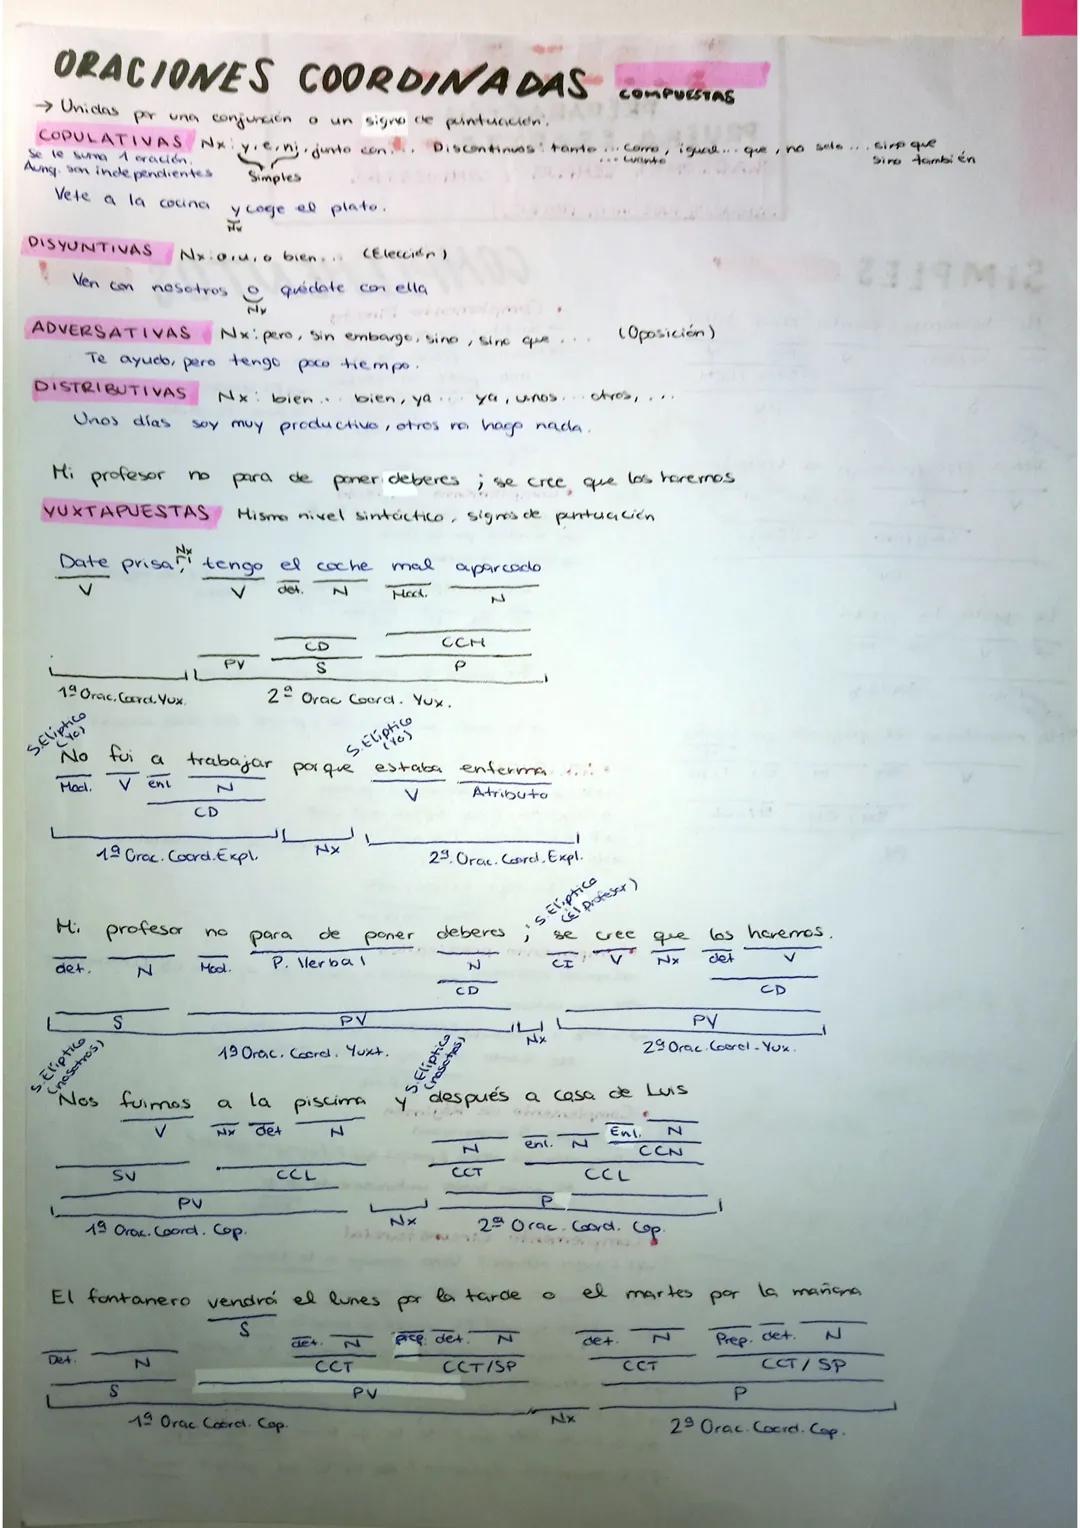 ORACIONES COORDINADAS COMPUESTAS
→ Unidas por una conjunción o un signo de puntuación.
COPULATIVAS Nx: y, e, ni, junto con... Discontinuas: tanto ... como, igual... que, no solo ... sino que
Se le suma 1 oración. ... cuanto sino también
Aunq. son independientes Simples
Vete a la cocina y coge el plato.
Nx
DISYUNTIVAS Nx: o, u, o bien... (Elección)
Ven con nosotros o quédate con ella
Nx
ADVERSATIVAS Nx: pero, sin embargo, sino, sino que ... (Oposición)
Te ayudo, pero tengo poco tiempo.
DISTRIBUTIVAS Nx: bien... bien, ya ... ya, unos... otros, ...
Unos días soy muy productivo, otros no hago nada.
Mi profesor no para de poner deberes ; se cree que los haremos
YUXTAPUESTAS Mismo nivel sintáctico, signos de puntuación
Nx
Date prisa, tengo el coche mal aparcado
V V det. N Mod. N
CD CCM
PV S P
1ª Orac. Coord. Yux. 2ª Orac Coord. Yux.
S. Elíptico (Yo) S. Elíptico (Yo)
No fui a trabajar porque estaba enferma
Mod. V enl N V Atributo
CD
1ª Orac. Coord. Expl. Nx 2ª. Orac. Coord. Expl.
S. Elíptico (El profesor)
Mi profesor no para de poner deberes ; se cree que los haremos.
det. N Mod. P. Verbal N CI V Nx det V
CD CD
S PV PV
1ª Orac. Coord. Yuxt. Nx 2ª Orac. Coord. Yux.
S. Elíptico (nosotros) S. Elíptico (nosotros)
Nos fuimos a la piscina y después a casa de Luis
V Nx det N N enl. N Enl. N
CCN
SV CCL CCT CCL
PV P
1ª Orac. Coord. Cop. Nx 2ª Orac. Coord. Cop.
El fontanero vendrá el lunes por la tarde o el martes por la mañana
S
det. N prep. det. N det. N Prep. det. N
Det. N CCT CCT/SP CCT CCT/SP
S PV P
1ª Orac Coord. Cop. Nx 2ª Orac. Coord. Cop.